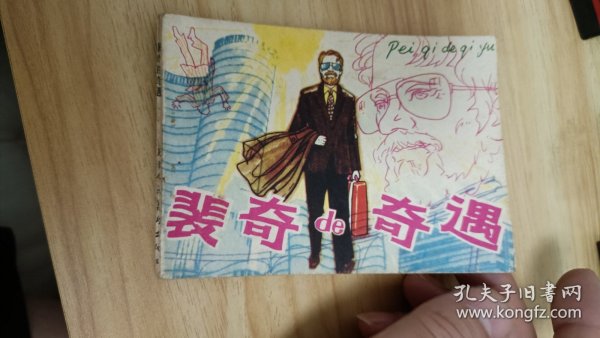 Pei qi de qi yu
裴奇de奇遇
孔夫子旧书网
www.kongfz.com